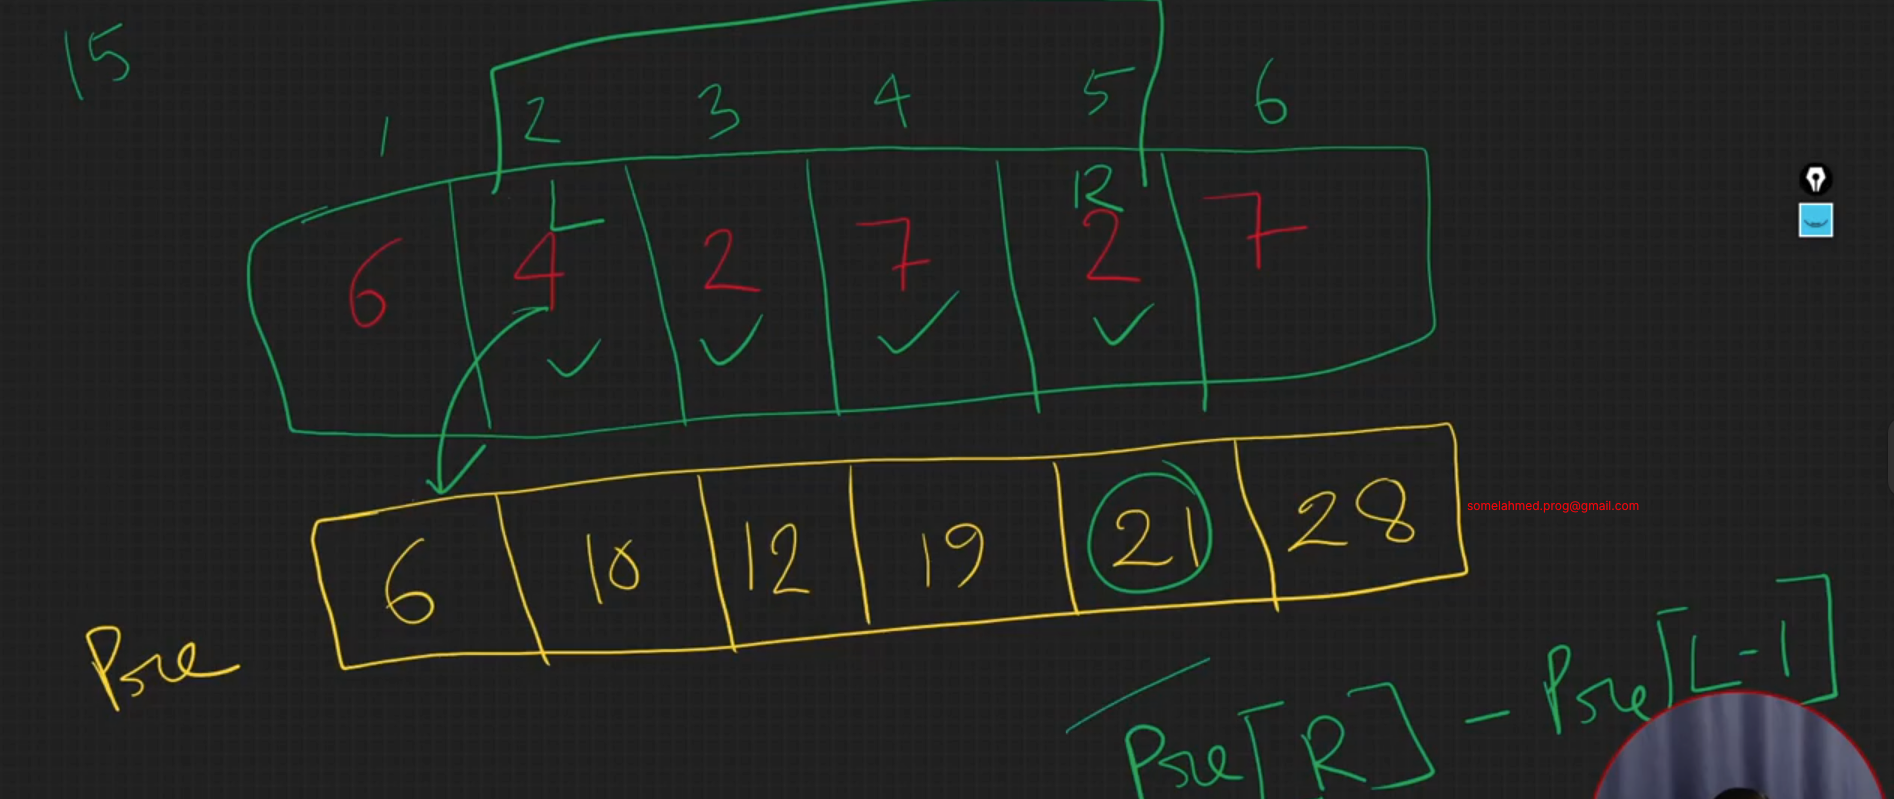 15
1 2 3 4 5 6
L R
6 4 2 7 2 7
6 10 12 19 21 28
somelahmed.prog@gmail.com
Pre
Pre[R] - Pre[L-1]